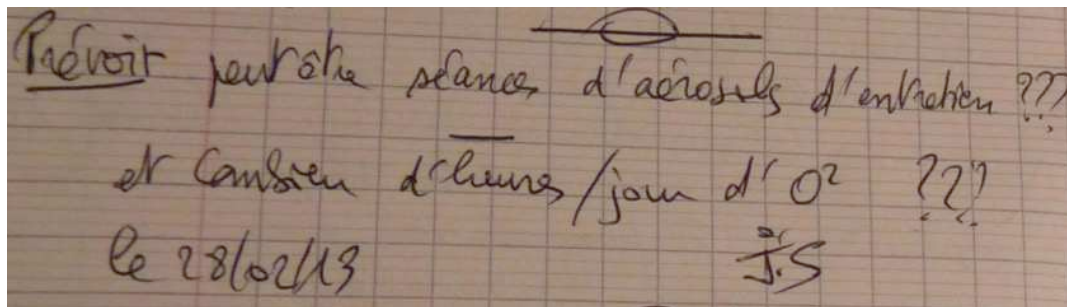 Prévoir peut être séances d'aérosols d'entretien ???
et combien d'heures/jour d'O2 ???
le 28/02/13 J.S